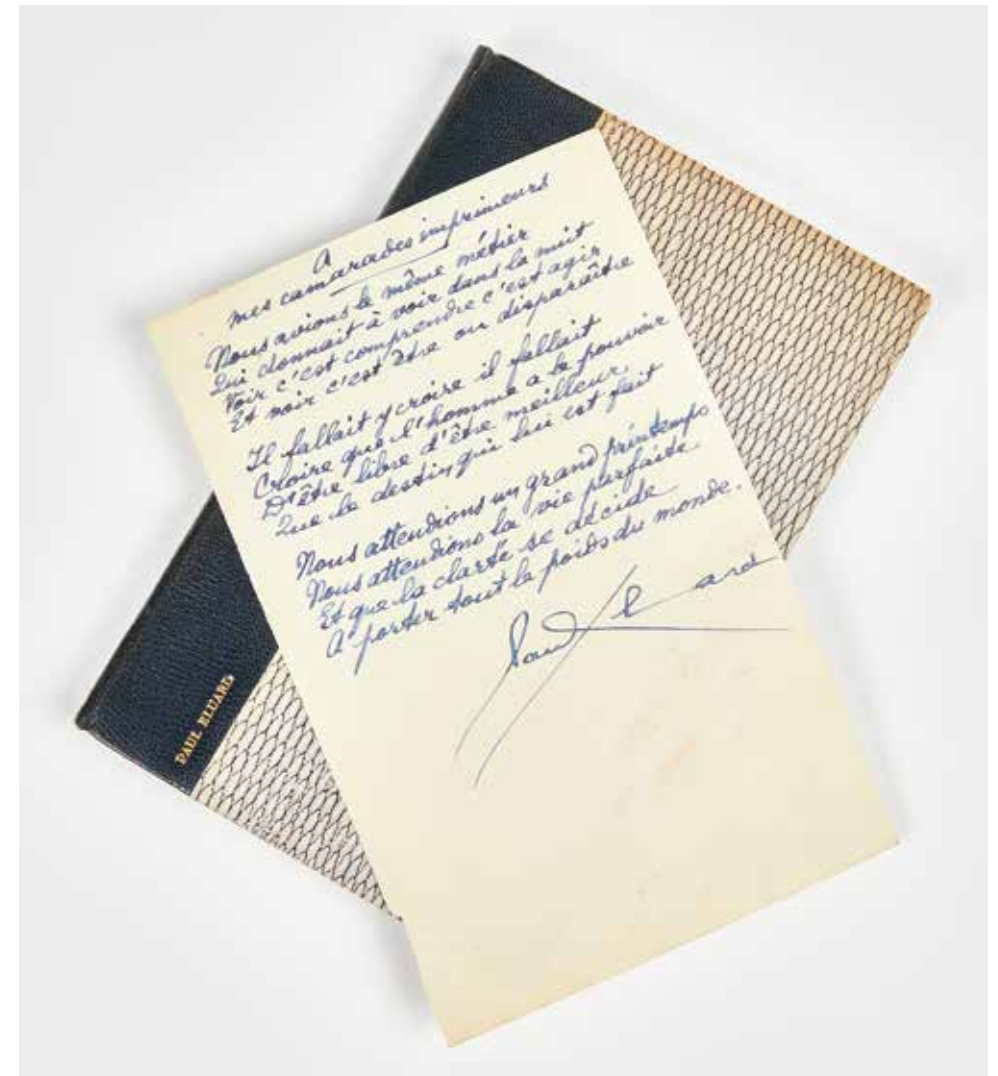 A
mes camarades imprimeurs
Nous avions le même métier
Qui donnait à voir dans la nuit
Voir c'est comprendre c'est agir
Et voir c'est être ou disparaître
Il fallait y croire il fallait
Croire que l'homme a le pouvoir
D'être libre d'être meilleur
Que le destin qui lui est fait
Nous attendions un grand printemps
Nous attendions la vie parfaite
Et que la clarté se décide
A porter tout le poids du monde.
Paul Eluard
PAUL ELUARD